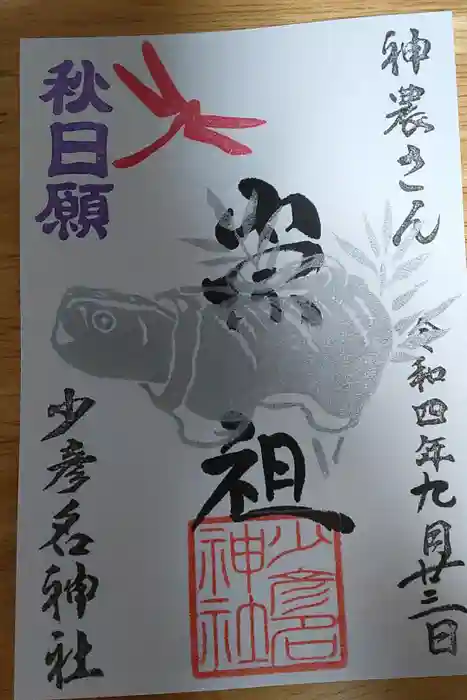 神農さん
令和四年九月廿三日
薬祖
少彦名
神社
秋日願
少彦名神社